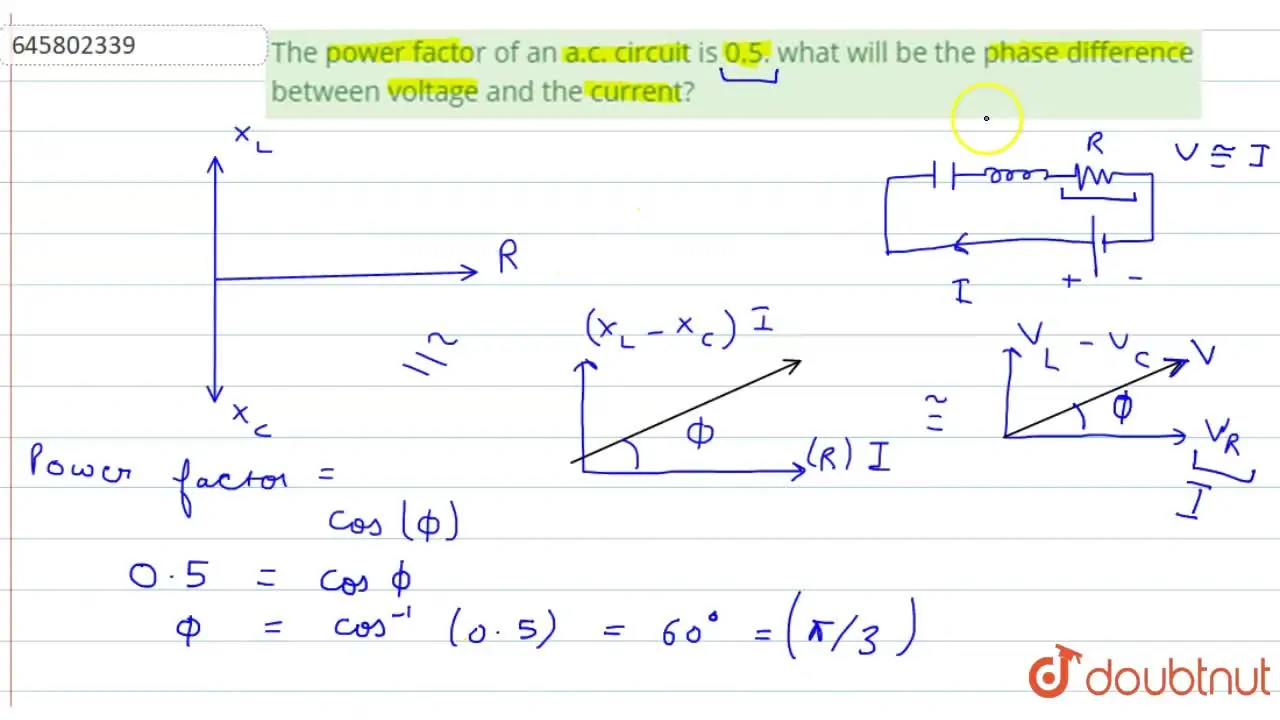 645802339
The power factor of an a.c. circuit is 0.5. what will be the phase difference
between voltage and the current?
X_L
R
X_C
R
V ≅ I
I
+ -
(X_L - X_C) I
ϕ
(R) I
≅
V_L - V_C
V
ϕ
V_R
I
Power factor =
cos (ϕ)
0.5 = cos ϕ
ϕ = cos⁻¹ (0.5) = 60° = (π/3)
doubtnut